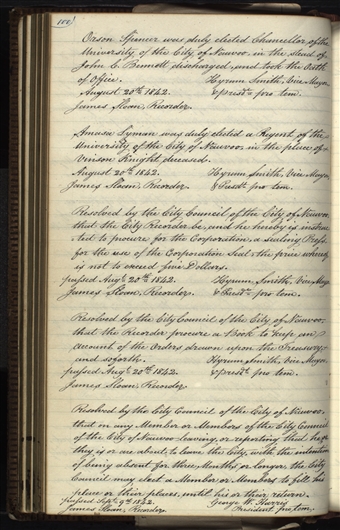 100)
Orson Spencer was duly elected Chancellor of the
University of the City of Nauvoo, in the stead of
John C. Bennett discharged, and took the Oath
of Office. Hyrum Smith, Vice Mayor
August 20th 1842. & Presdt. pro tem.
James Sloan, Recorder.
Amasa Lyman was duly elected a Regent of the
University of the City of Nauvoo, in the place of
Vinson Knight deceased.
August 20th 1842. Hyrum Smith, Vice Mayor
James Sloan, Recorder. & Presdt. pro tem.
Resolved by the City Council of the City of Nauvoo,
that the City Recorder be, and he hereby is instruc
ted to procure for the Corporation, a sealing Press
for the use of the Corporation Seal, the price whereof
is not to exceed five Dollars.
passed Augt. 20th 1842. Hyrum Smith, Vice Mayor
James Sloan, Recorder. & Presdt. pro tem.
Resolved by the City Council of the City of Nauvoo,
that the Recorder procure a Book to keep an
account of the Orders drawn upon the Treasury,
and so forth. Hyrum Smith, Vice Mayor
passed Augt. 20th 1842. & Presdt. pro tem.
James Sloan, Recorder.
Resolved by the City Council of the City of Nauvoo,
that in any Member or Members of the City Council
of the City of Nauvoo leaving, or reporting that he or
they is or are about to leave the City, with the intention
of being absent for three Months or longer, the City
Council may elect a Member or Members to fill his
place or their places, until his or their return.
passed Sept. 9th 1842. George W. Harris
James Sloan, Recorder. President pro tem.